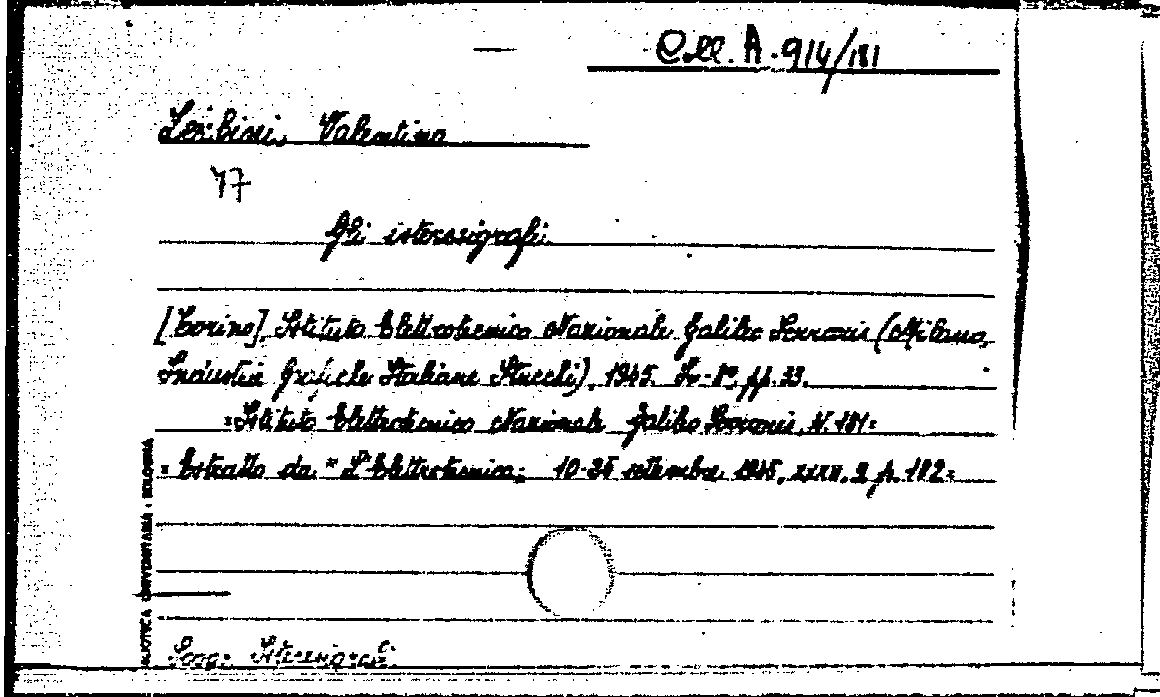 Coll. A. 914/181
Zerbini, Valentino
77
Gli isteresigrafi.
[Torino], Istituto Elettrotecnico Nazionale Galileo Ferraris (Milano,
Industrie Grafiche Italiane Stucchi), 1945. In-8°, pp. 33.
=Istituto Elettrotecnico Nazionale Galileo Ferraris, N. 181=
= Estratto da "L'Elettrotecnica; 10-25 settembre 1945, XXXII, 9 p. 182=
BIBLIOTECA UNIVERSITARIA : BOLOGNA
Sogg: Isteresigrafi.